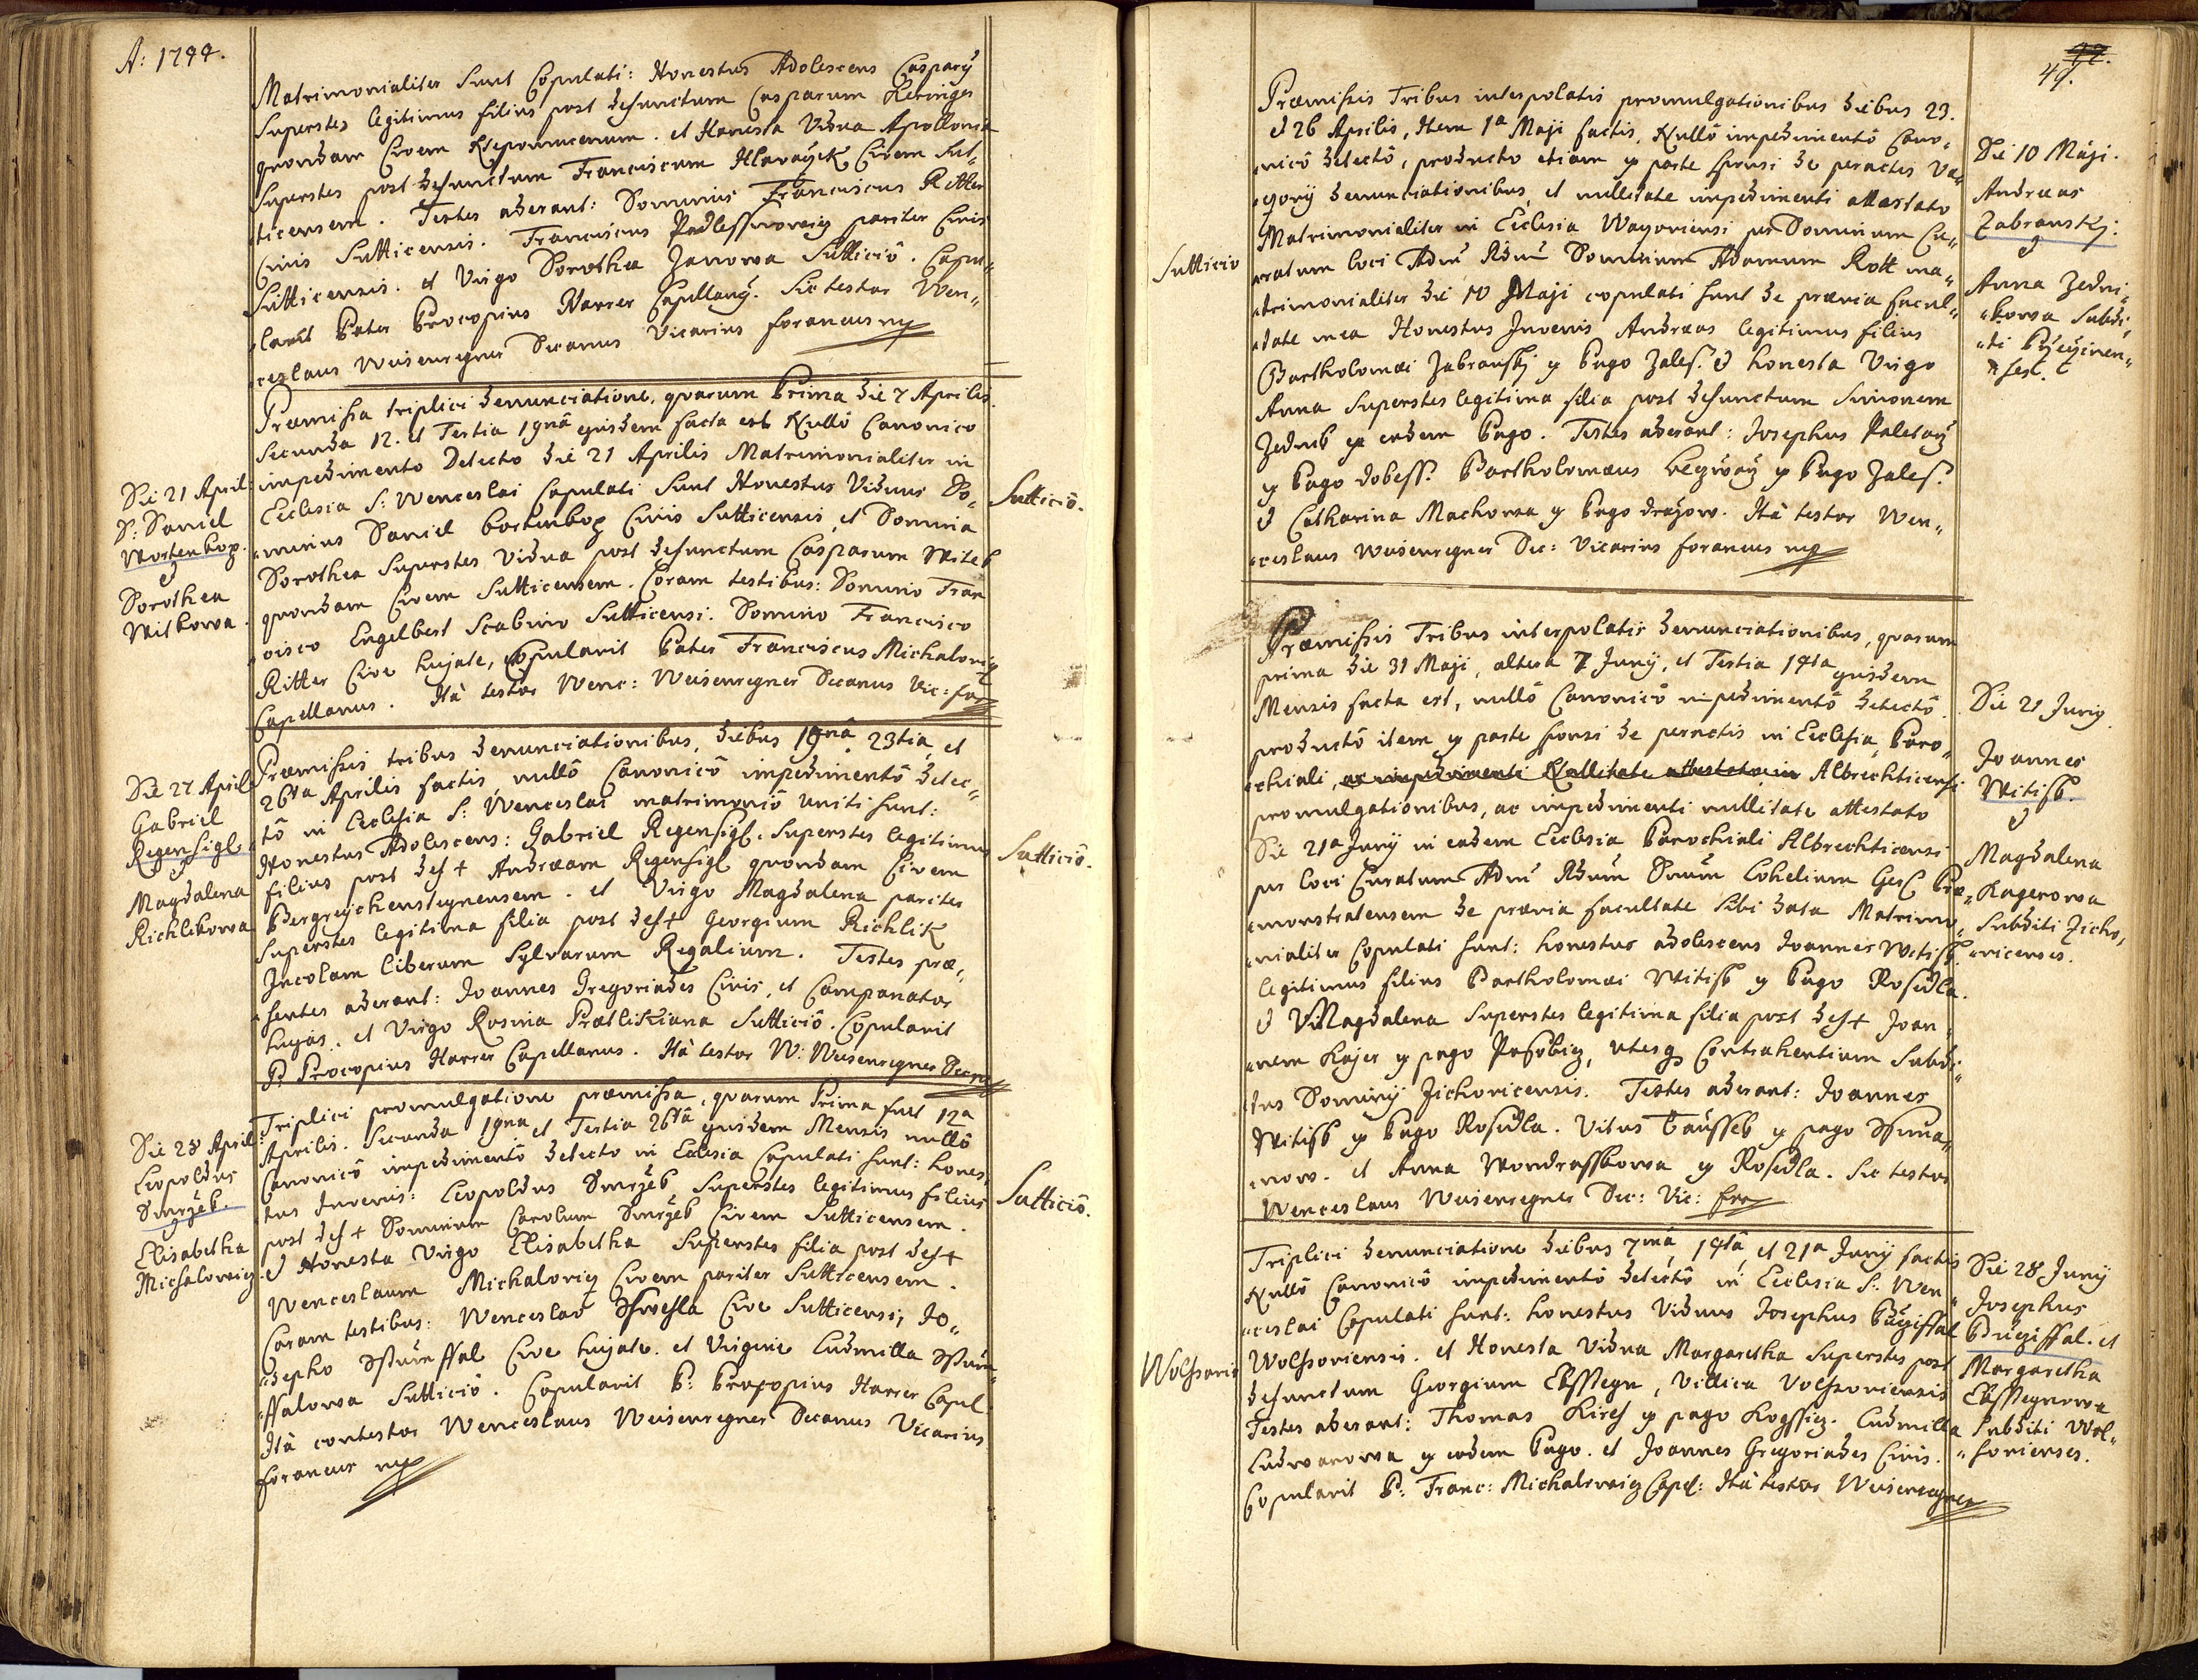 A: 1744.
Matrimonialiter Sunt Copulati: Honestus Adolescens Caspary
Superstes legitimus filius post defunctum Casparum
quondam Civem Nepomucenum. et Honesta Vidua Apollonia
Superstes post defunctum Franciscum Hlavayck, Civem Sut„
„ticensem. Testes aderant: Dominus Franciscus Ritter
Civis Sutticensis. Franciscus pariter Civis
Sutticensis. et Virgo Dorothea Janowa Sutticiô. Copu„
„lavit Pater Procopius Harrer Capellanq. Sic testor Wen„
„ceslaus Weisenregner Decanus Vicarius foraneus mp
Die 21 April:
D: Daniel
Wortenbop.
&
Dorothea
Witkowa.
Præmissa triplici denunciatione, quarum Prima die 7 Aprilis.
Secunda 12. et Tertia 19nâ ejusdem facta est Nullô Canonico
impedimento Detecto die 21 Aprilis Matrimonialiter in
Ecclesia S: Wenceslai Copulati Sunt Honestus Viduus Do„
„minus Daniel Civis Sutticensis, et Domina
Dorothea Superstes Vidua post defunctum Casparum Witek
quondam Civem Sutticensem. Coram testibus: Domino Fran
„cisco Engelbert Scabino Sutticensi. Domino Francisco
Ritter Cive hujate, Copulavit Pater Franciscus Michalowicz
Capellanus. Ità testor Wenc: Weisenregner Decanus Vic: for
Sutticiô.
Die 27 April
Gabriel
Regensigl.
&
Magdalena
Richlikowa
Præmissis tribus denunciationibus, diebus 19nâ. 23tia, et
26ta Aprilis factis, nullô Canonicô impedimentô detec„
tô in Ecclesia S: Wenceslai matrimoniô Uniti sunt:
Honestus Adolescens: Gabriel Regensigl. Superstes legitimus
filius post def+ Andræam Regensigl quondam Civem
Bergreychensteynensem. et Virgo Magdalena pariter
Superstes legitima filia post def+ Georgium Richlik
Incolam liberum Sylvarum Regalium. Testes præ„
„sentes aderant: Joannes Gregoriades Civis, et Campanator
hujas. et Virgo Rosina Sutticiô. Copulavit
P. Procopius Harrer Capellanus. Ità testor W: Weisenregner Dec
Sutticiô.
Die 28 April:
Leopoldus
Smrżek.
&
Elisabetha
Michalowicz.
Triplici promulgatione præmissa, quarum Prima fuit 12a
Aprilis. Secunda 19na et Tertia 26ta ejusdem Mensis nullô
Canonicô impedimentô detecto in Ecclesia Copulati sunt: hones„
tus Juvenis: Leopoldus Smrżek Superstes legitimus filius
post def+ Dominum Carolum Smrżek Civem Sutticensem.
& Honesta Virgo Elisabetha Superstes filia post def+
Wenceslaum Michalowicz Civem pariter Sutticensem.
Coram testibus: Wenceslao Cive Sutticensi, Jo„
„sepho Cive hujate. et Virgine Ludmilla
„ffalowa Sutticiô. Copulavit P: Procopius Harrer Capel
Ità contestor Wenceslaus Weisenregner Decanus Vicarius
foraneus mp
Sutticiô.
49.
Sutticio
Præmissis Tribus interpolatis promulgationibus diebus 23.
& 26 Aprilis, Item 1a Maji factis. Nullô impedimentô Cano„
„nicô detectô, producto etiam ex parte sponsi de peractis Wa„
„yorij denunciationibus, et nullitate impedimenti attestato
Matrimonialiter in Ecclesia Wayoriensi per Dominum Cu„
„ratum loci Adm̃ Rdũm Dominum Adamum Rott ma„
„trimonialiter die 10 Maji copulati sunt de prævia facul„
„tate mea Honestus Juvenis Andreas legitimus filius
Bartholomæi Zabranskj ex Pago Zales. & honesta Virgo
Anna Superstes legitima filia post defunctum Simonem
Zednik ex eodem Pago. Testes aderant: Josephus
ex Pago dobess. Bartholomæus ex Pago Zales.
& Catharina Machowa ex Pago drażow. Ità testor Wen„
„ceslaus Weisenregner Dec: Vicarius foraneus mp
Die 10 Maji.
Andreas
Zabranskj:
&
Anna Zedni„
„kowa Subdi„
„ti
Præmissis Tribus interpolatis denunciationibus, quarum
prima die 31 Maji, altera 7 Junij, et Tertia 14ta ejusdem
Mensis facta est, nullô Canonicô impedimentô detectô.
productô item ex parte sponsi de peractis in Ecclesia, Paro„
„chiali, ac impedimenti Nullitate attestatoin Albrechticensi
promulgationibus, ac impedimenti nullitate attestato
Die 21a Junij in eadem Ecclesia Parochiali Albrechticensi
per loci Curatum Adm̃ Rdũm Dnum Eckelium Præ„
„monstratensem de prævia facultate Sibi data Matrimo„
„nialiter Copulati sunt: honestus adolescens Joannes Witisk
legitimus filius Bartholomæi Witisk ex Pago Rosedla.
& Magdalena Superstes legitima filia post def+ Joan„
„nem Kajer ex pago uterq Contrahentium Subdi„
„tus Dominij Zichovicensis. Testes aderant: Joannes
Witisk ex Pago Rosedla. Vitus ex pago
„now. et Anna Wondrasskowa ex Rosedla. Sic testor
Wenceslaus Weisenregner Dec: Vic: for
Die 21 Junij.
Joannes
Witisk.
&
Magdalena
Kagerowa
Subditi Zicho„
„vicenses.
Wolssowis
Triplici denunciatione diebus 7mâ, 14tâ, et 21a Junij factis
Nullô Canonicô impedimentô detectô in Ecclesia S: Wen„
„ceslai Copulati sunt: honestus Viduus Josephus
Wolssoviensis. et Honesta Vidua Margaretha Superstes post
defunctum Georgium Ebssteyn, Villica Volssoviensis
Testes aderant: Thomas ex pago Ludmilla
Ludwarowa ex eodem Pago. et Joannes Gregoriades Civis.
Copulavit P: Franc: Michalowicz Capel: Ità testor Weisenregner
Die 28 Junij
Josephus
et
Margaretha
Ebssteynowa
Subditi Wol„
„sovienses.